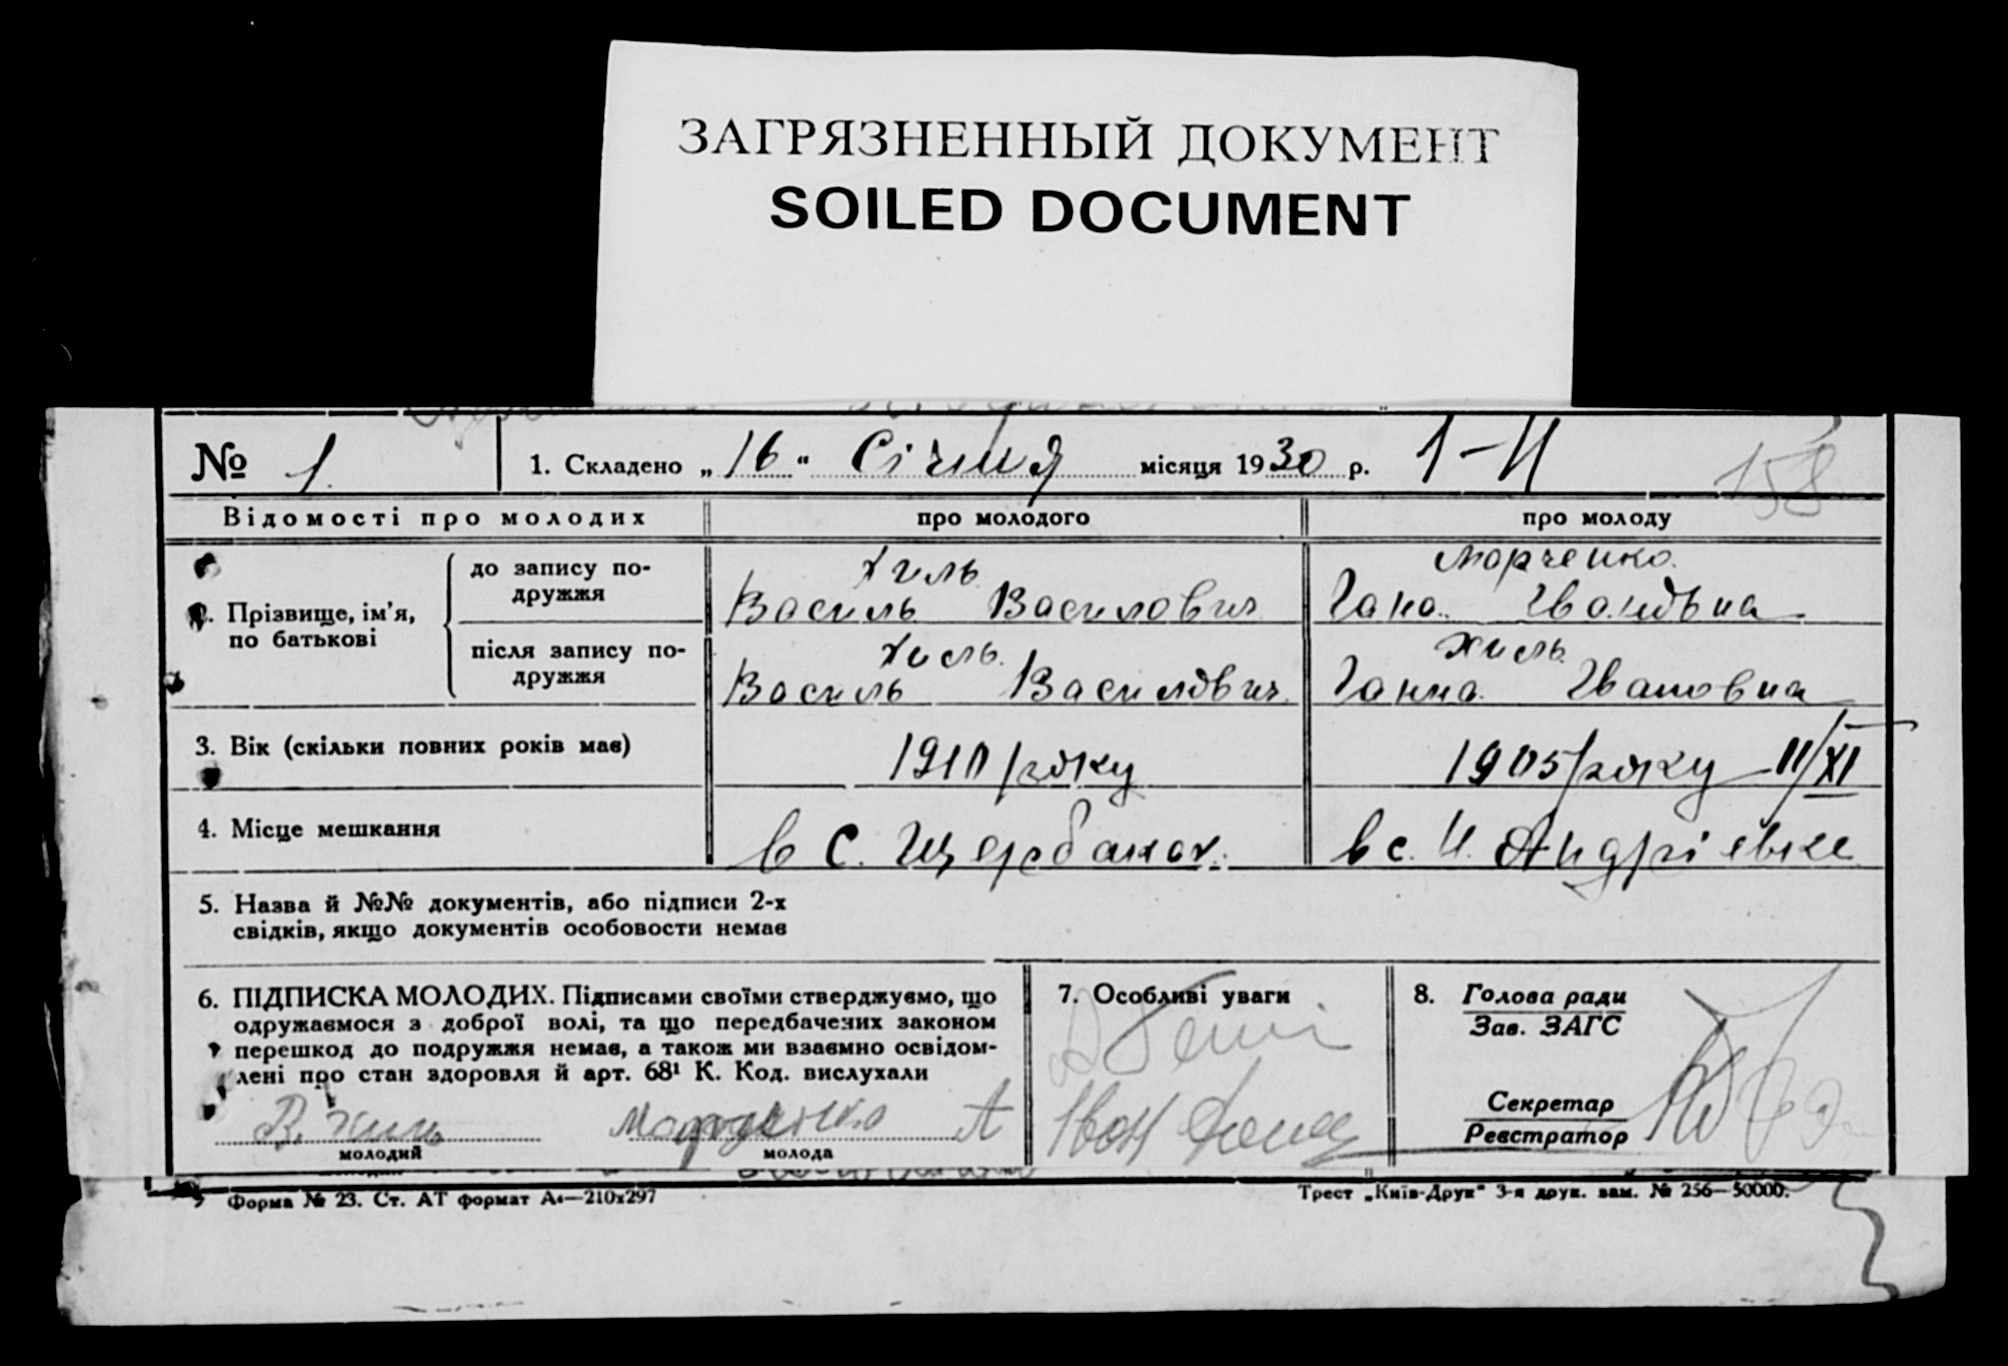 ЗАГРЯЗНЕННЫЙ ДОКУМЕНТ
SOILED DOCUMENT
№ 1. 1. Складено „16“ Січня місяця 1930 р. 1-II 158
Відомості про молодих про молодого про молоду
2. Прізвище, ім’я, по батькові
до запису подружжя
Хиль
Василь Василович
Марченко.
Гана. Івановна
після запису подружжя
Хиль.
Василь Василович.
Хиль
Ганна. Івановна
3. Вік (скільки повних років має) 1910 року 1905 року 11/XI
4. Місце мешкання в с. Щербаках. в с. Н. Андрієвке
5. Назва й №№ документів, або підписи 2-х
свідків, якщо документів особовости немає
6. ПІДПИСКА МОЛОДИХ. Підписами своїми стверджуємо, що
одружаємося з доброї волі, та що передбачених законом
перешкод до подружжя немає, а також ми взаємно освідом-
лені про стан здоровля й арт. 68¹ К. Код. вислухали
В. Хиль Марченко А
молодий молода
7. Особливі уваги
Іван
8. Голова ради
Зав. ЗАГС
Секретар
Реєстратор
Форма № 23. Ст. АТ формат А₄—210x297 Трест „Київ-Друк“ 3-я друк. зам. № 256—50000.